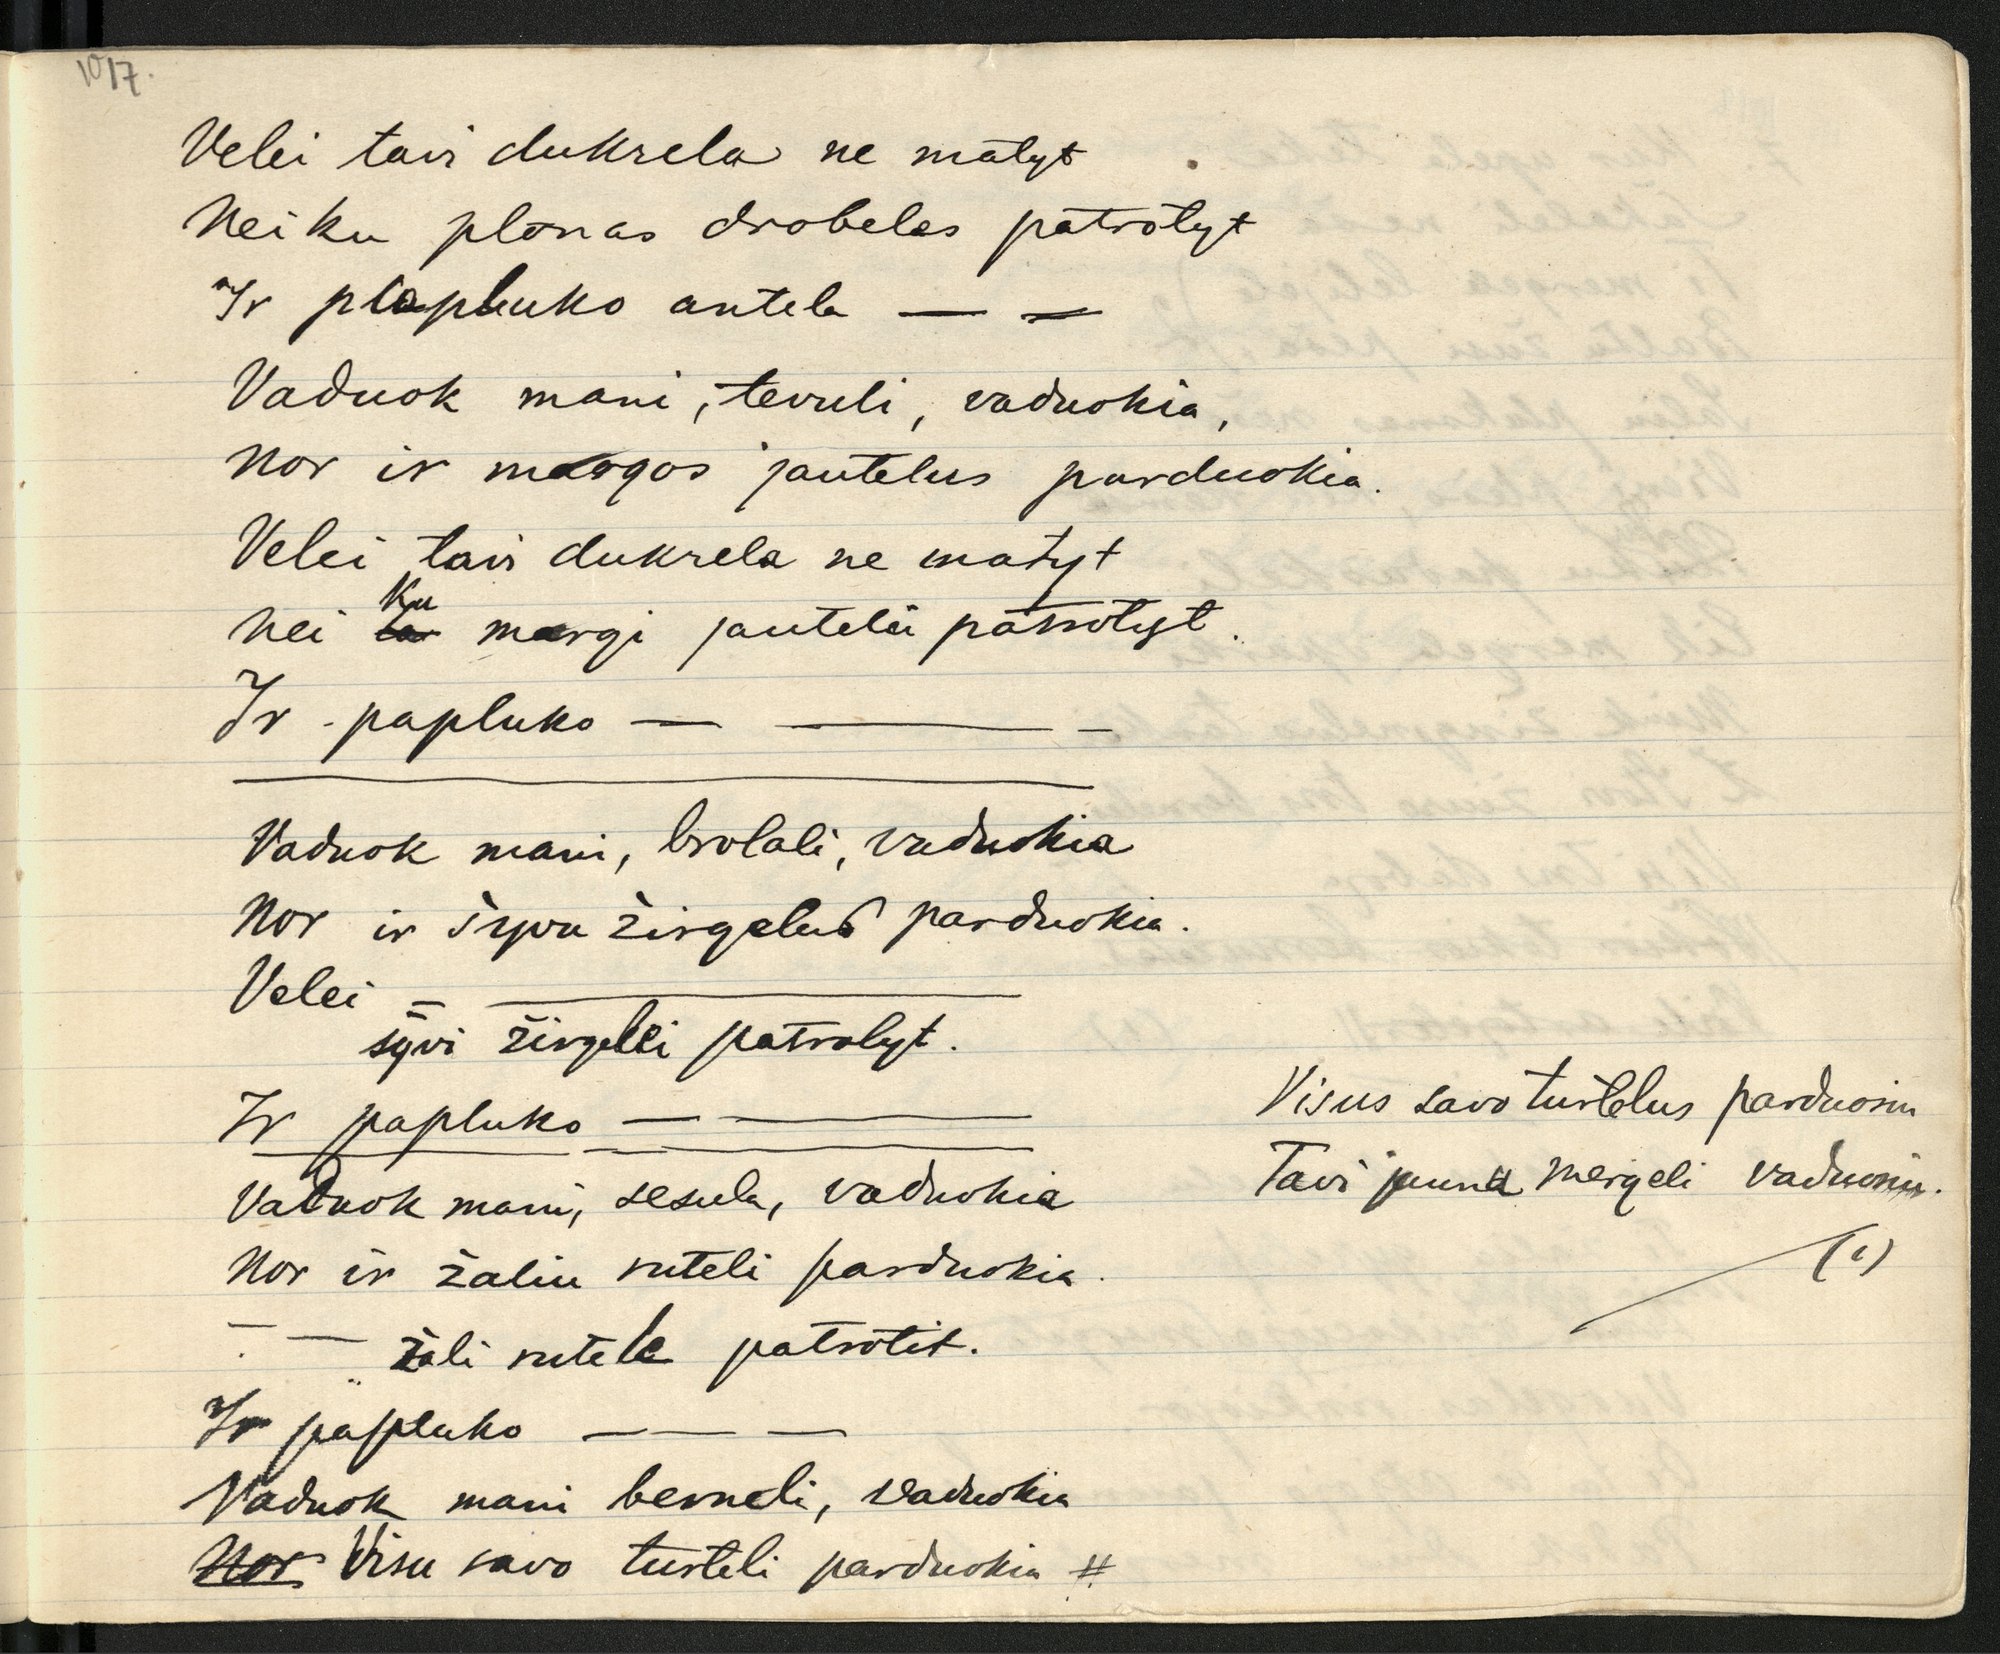 1017.
Velei tavi dukrela ne matyt
Nei ku plonas drobeles patrotyt
Ir plapluko antela — —
Vaduok mani, tevuli, vaduokia,
Nor ir margos jautelus parduokia.
Velei tavi dukrela ne matyt
Nei ku margi jautelii patrotyt.
Ir papluko — — —
Vaduok mani, brolali, vaduokia
Nor ir šyvu žirgelus parduokia.
Velei — —
šyvi žirgelii patrotyt.
Ir papluko — —
Vaduok mani, sesula, vaduokia
Nor ir žaliu ruteli parduokia.
— — žali rutele patrotit.
Ir papluko — — —
Vaduok mani berneli, vaduokia
Nor Visu savo turteli parduokia #
Visus savo turtelus parduosiu
Tavi jauna mergeli vaduosiu.
(1)